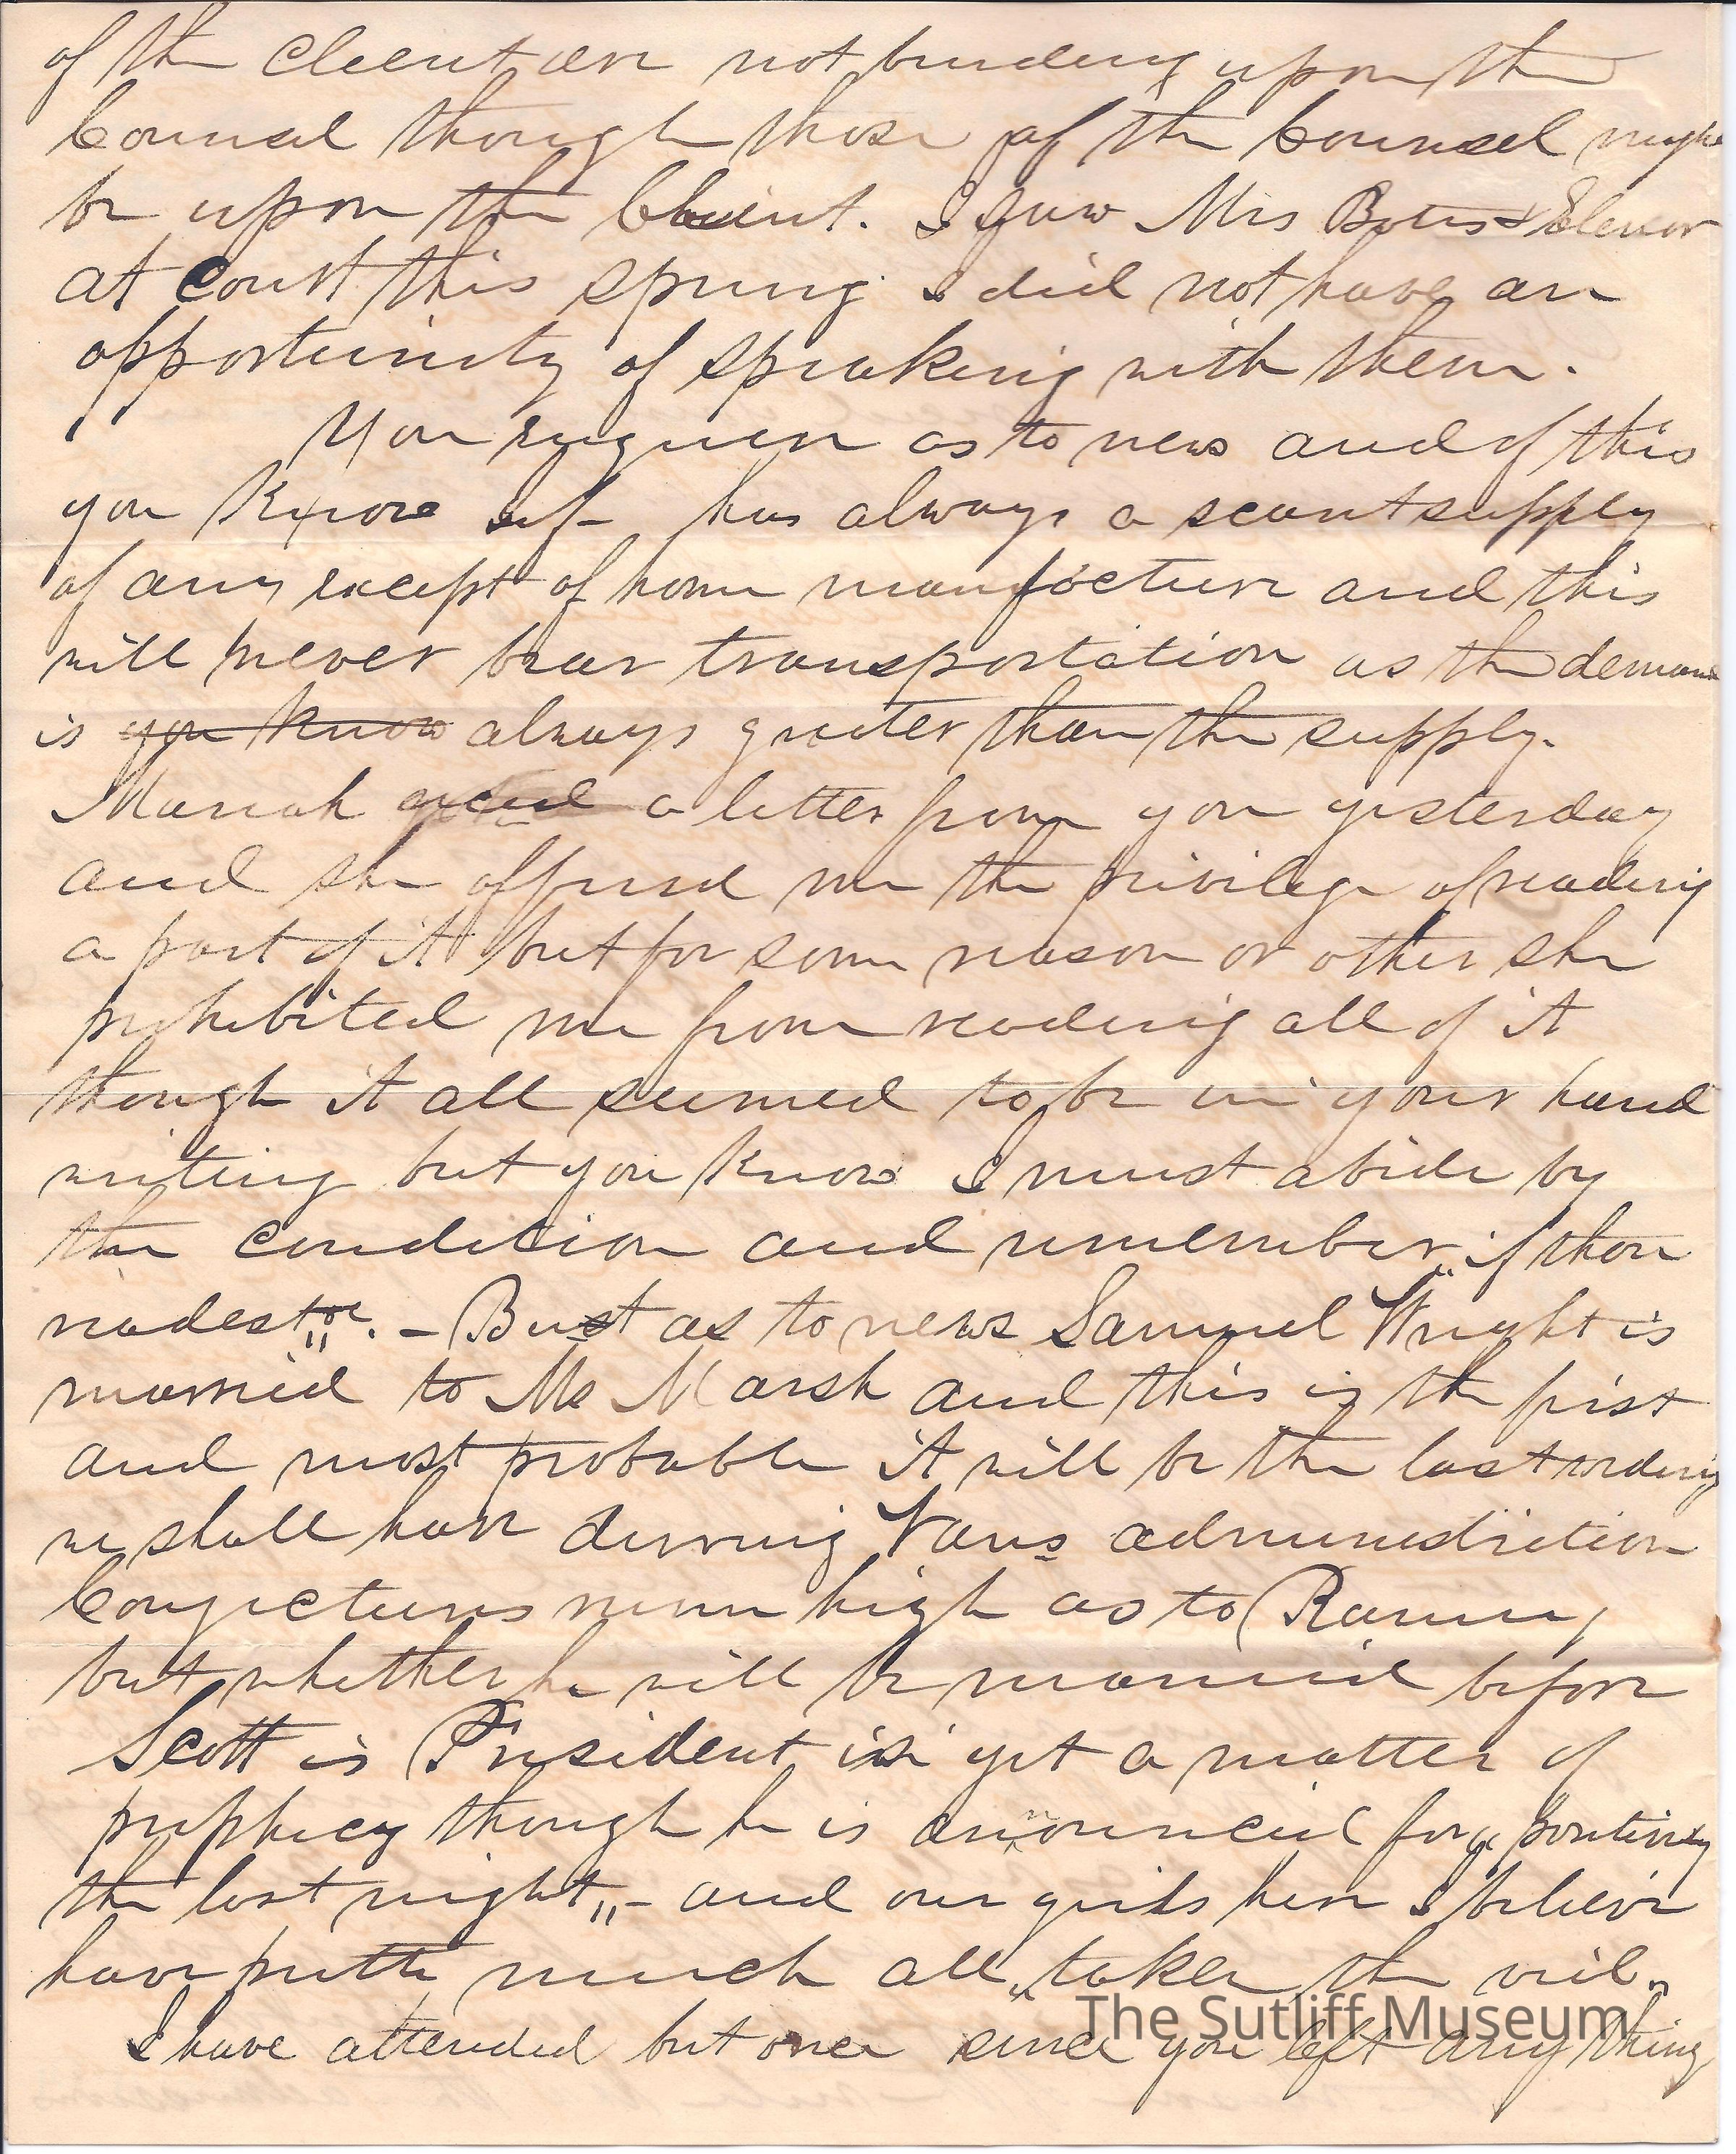 of the Client are not binding upon the
Counsel though those of the Counsel might
be upon the Client. I saw Mrs Bates & Elenor
at Court this spring I did not have an
opportunity of speaking with them.
You enquire as to news and of this
you know has always a scant supply
of any except of home manufacture and this
will never bear transportation as the demand
is you know always greater than the supply.
Mariah a letter from you yesterday
and she offered me the privilege of reading
a part of it but for some reason or other she
prohibited me from reading all of it
though it all seemed to be in your hand
writing but you know I must abide by
the condition and remember "if thou
readest". - But as to news Samuel Wright is
married to Ms Marsh and this is the first
and most probable it will be the last wedding
we shall have during Vans administration
Conjectures run high as to Ranny
but whether he will be married before
Scott is President is yet a matter of
prophecy though he is announced for "
the last night" - and our girls here I believe
have prettte much all "taken the veil"
I have attended but once since you left any thing
The Sutliff Museum